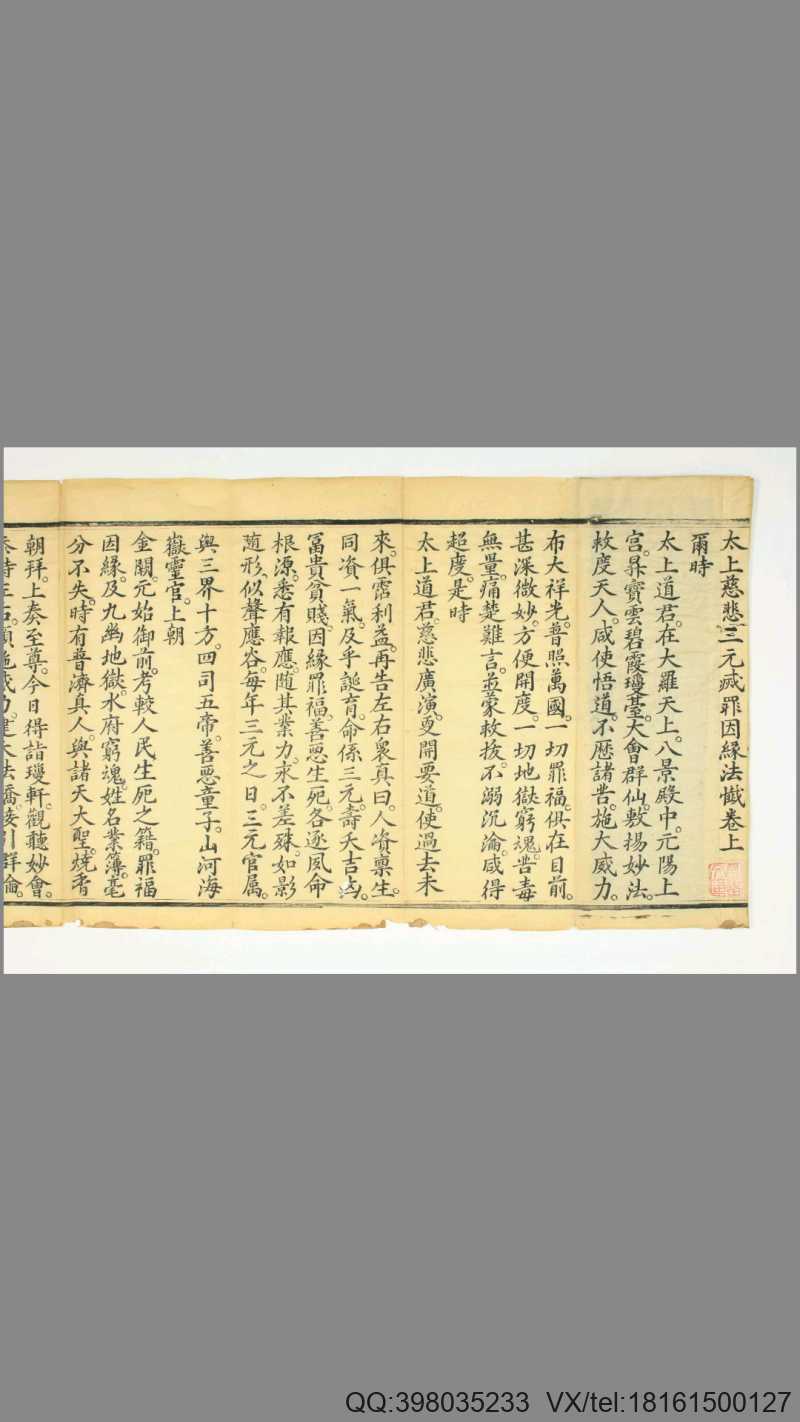 太上慈悲三元滅罪因緣法懺卷上
爾時
太上道君。在大羅天上。八景殿中。元陽上
宮。昇寶雲碧霞瓊臺。大會群仙。敷揚妙法。
救度天人。咸使悟道。不歷諸苦。施大威力。
布大祥光。普照萬國。一切罪福。俱在目前。
甚深微妙。方便開度。一切地獄窮魂。苦毒
無量。痛楚難言。並蒙救拔。不溺沉淪。咸得
超度。是時
太上道君。慈悲廣演。更開要道。使過去未
來。俱霑利益。再告左右眾真曰。人資稟生。
同資一氣。及乎誕育。命係三元。壽夭吉凶。
富貴貧賤。因緣罪福。善惡生死。各逐夙命
根源。悉有報應。隨其業力。永不差殊。如影
隨形。似聲應谷。每年三元之日。三元官屬。
與三界十方。四司五帝。善惡童子。山河海
嶽靈官。上朝
金闕。元始御前。考較人民生死之籍。罪福
因緣。及九幽地獄。水府窮魂。姓名業簿。毫
分不失。時有普濟真人。與諸天大聖。燒香
朝拜。上奏至尊。今日得詣瓊軒。觀聽妙會。
QQ:398035233 VX/tel:18161500127